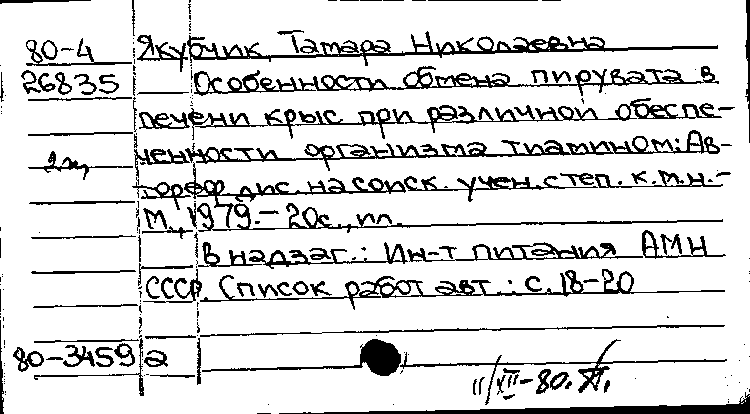 80-4 Якубчик, Тамара Николаевна
26835 Особенности обмена пирувата в
печени крыс при различной обеспе-
ченности организма тиамином: Ав-
тореф. дис. на соиск. учен. степ. к.м.н.-
М., 1979.-20с., ил.
В надзаг.: Ин-т питания АМН
СССР. Список работ авт.: с. 18-20
80-3459 а
11/XII-80.